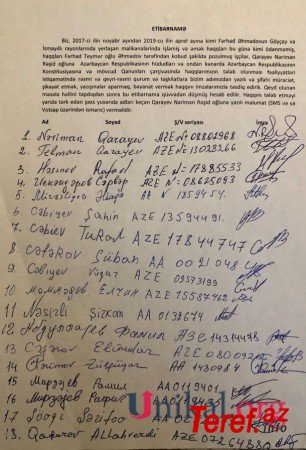 ETİBARNAMƏ
Biz, 2017-ci ilin noyabr ayından 2019-cu ilin aprel ayına kimi Fərhad Əhmədovun Göyçay və
İsmayıllı rayonlarında yerləşən malikanələrində işləmiş və əmək haqqları bu günə kimi ödənməmiş,
haqqları Fərhad Teymur oğlu Əhmədov tərəfindən kobud şəkildə pozulmuş işçilər, Qarayev Nəriman
Rəşid oğluna Azərbaycan Respublikasının hüdudları və ondan kənarda Azərbaycan Respublikasının
Konstitusiyasına və mövcud Qanunları çərçivəsində haqqlarımızın tələb olunması fəaliyyəti
istiqamətində rəsmi və qeyri-rəsmi qurum və təşkilatlarda bizi təmsil etməyə yazılı və şifahi müraciət,
şikayət etmək, yazışmalar aparmaq, bəyanat vermək hüququ imzalarımızla təsdiq edirik. Qeyd olunan
məsələ həllini tapdıqdan sonra bu etibarnamə qüvvədən düşmüş hesab edilir. Haqqını tələb etməyi
yarıda tərk edən şəxs yuxarıda adları keçən Qarayev Nəriman Rəşid oğluna yazılı məlumat (SMS və ya
Votsap üzərindən ismarıc) verməlidir.
Ad Soyad Ş/V seriyası İmza
1. Nəriman Qarayev AZE № 08802968
2. Telman Qarayev AZE № 13028266
3. Həsənov Rafael AZE - № 17885533
4. Искендеров Сәрвәр AZE № 08625093
5. AA № 1359454
6. Cəbiyev Şahin AZE 13594491
7. Cəbiev Tural AZE 17844747
8. Cəfərov Şüban AA 0021048
9. Cəbiyev Vüqar AZE 09573199
10 Мәммәдов. Елчин AZE 15587762
11 Nəsirli Şizkam AA 0139674
12 Фамил AZE 14314478
13 Cəfərov Elimdar AZE 0800921
14 Rəhimov Zülfüqar AA 1430984
15 Мирзәјев Рамил AA0119401
16 Мирзәјев AA0119433
17 Sərifoo AA 02
18. Qafarov Allahverdi AZE 07264880
Unikal
TerefAz